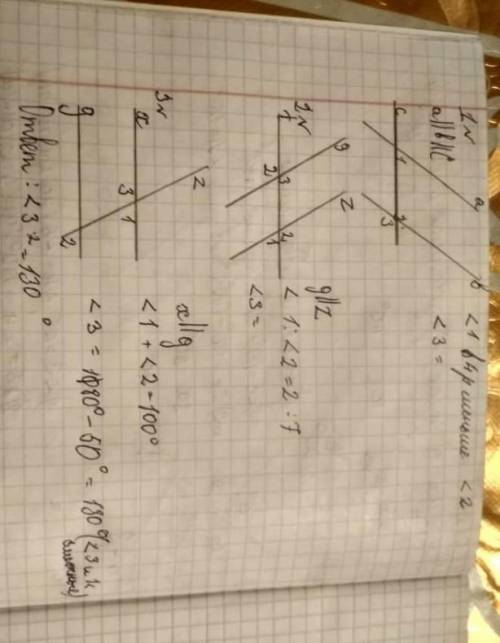 1N
a||b||c
c
a
1
b
2
3
<1 в 4р меньше <2
<3 =
2N
g
2 3
z
1
g||z
<1:<2=2:7
<3=
3N
x
z
3 1
g
2
x||g
<1+<2=100°
<3 = 180°-50°=130°(<3 и
смежные)
Ответ: <3=130°